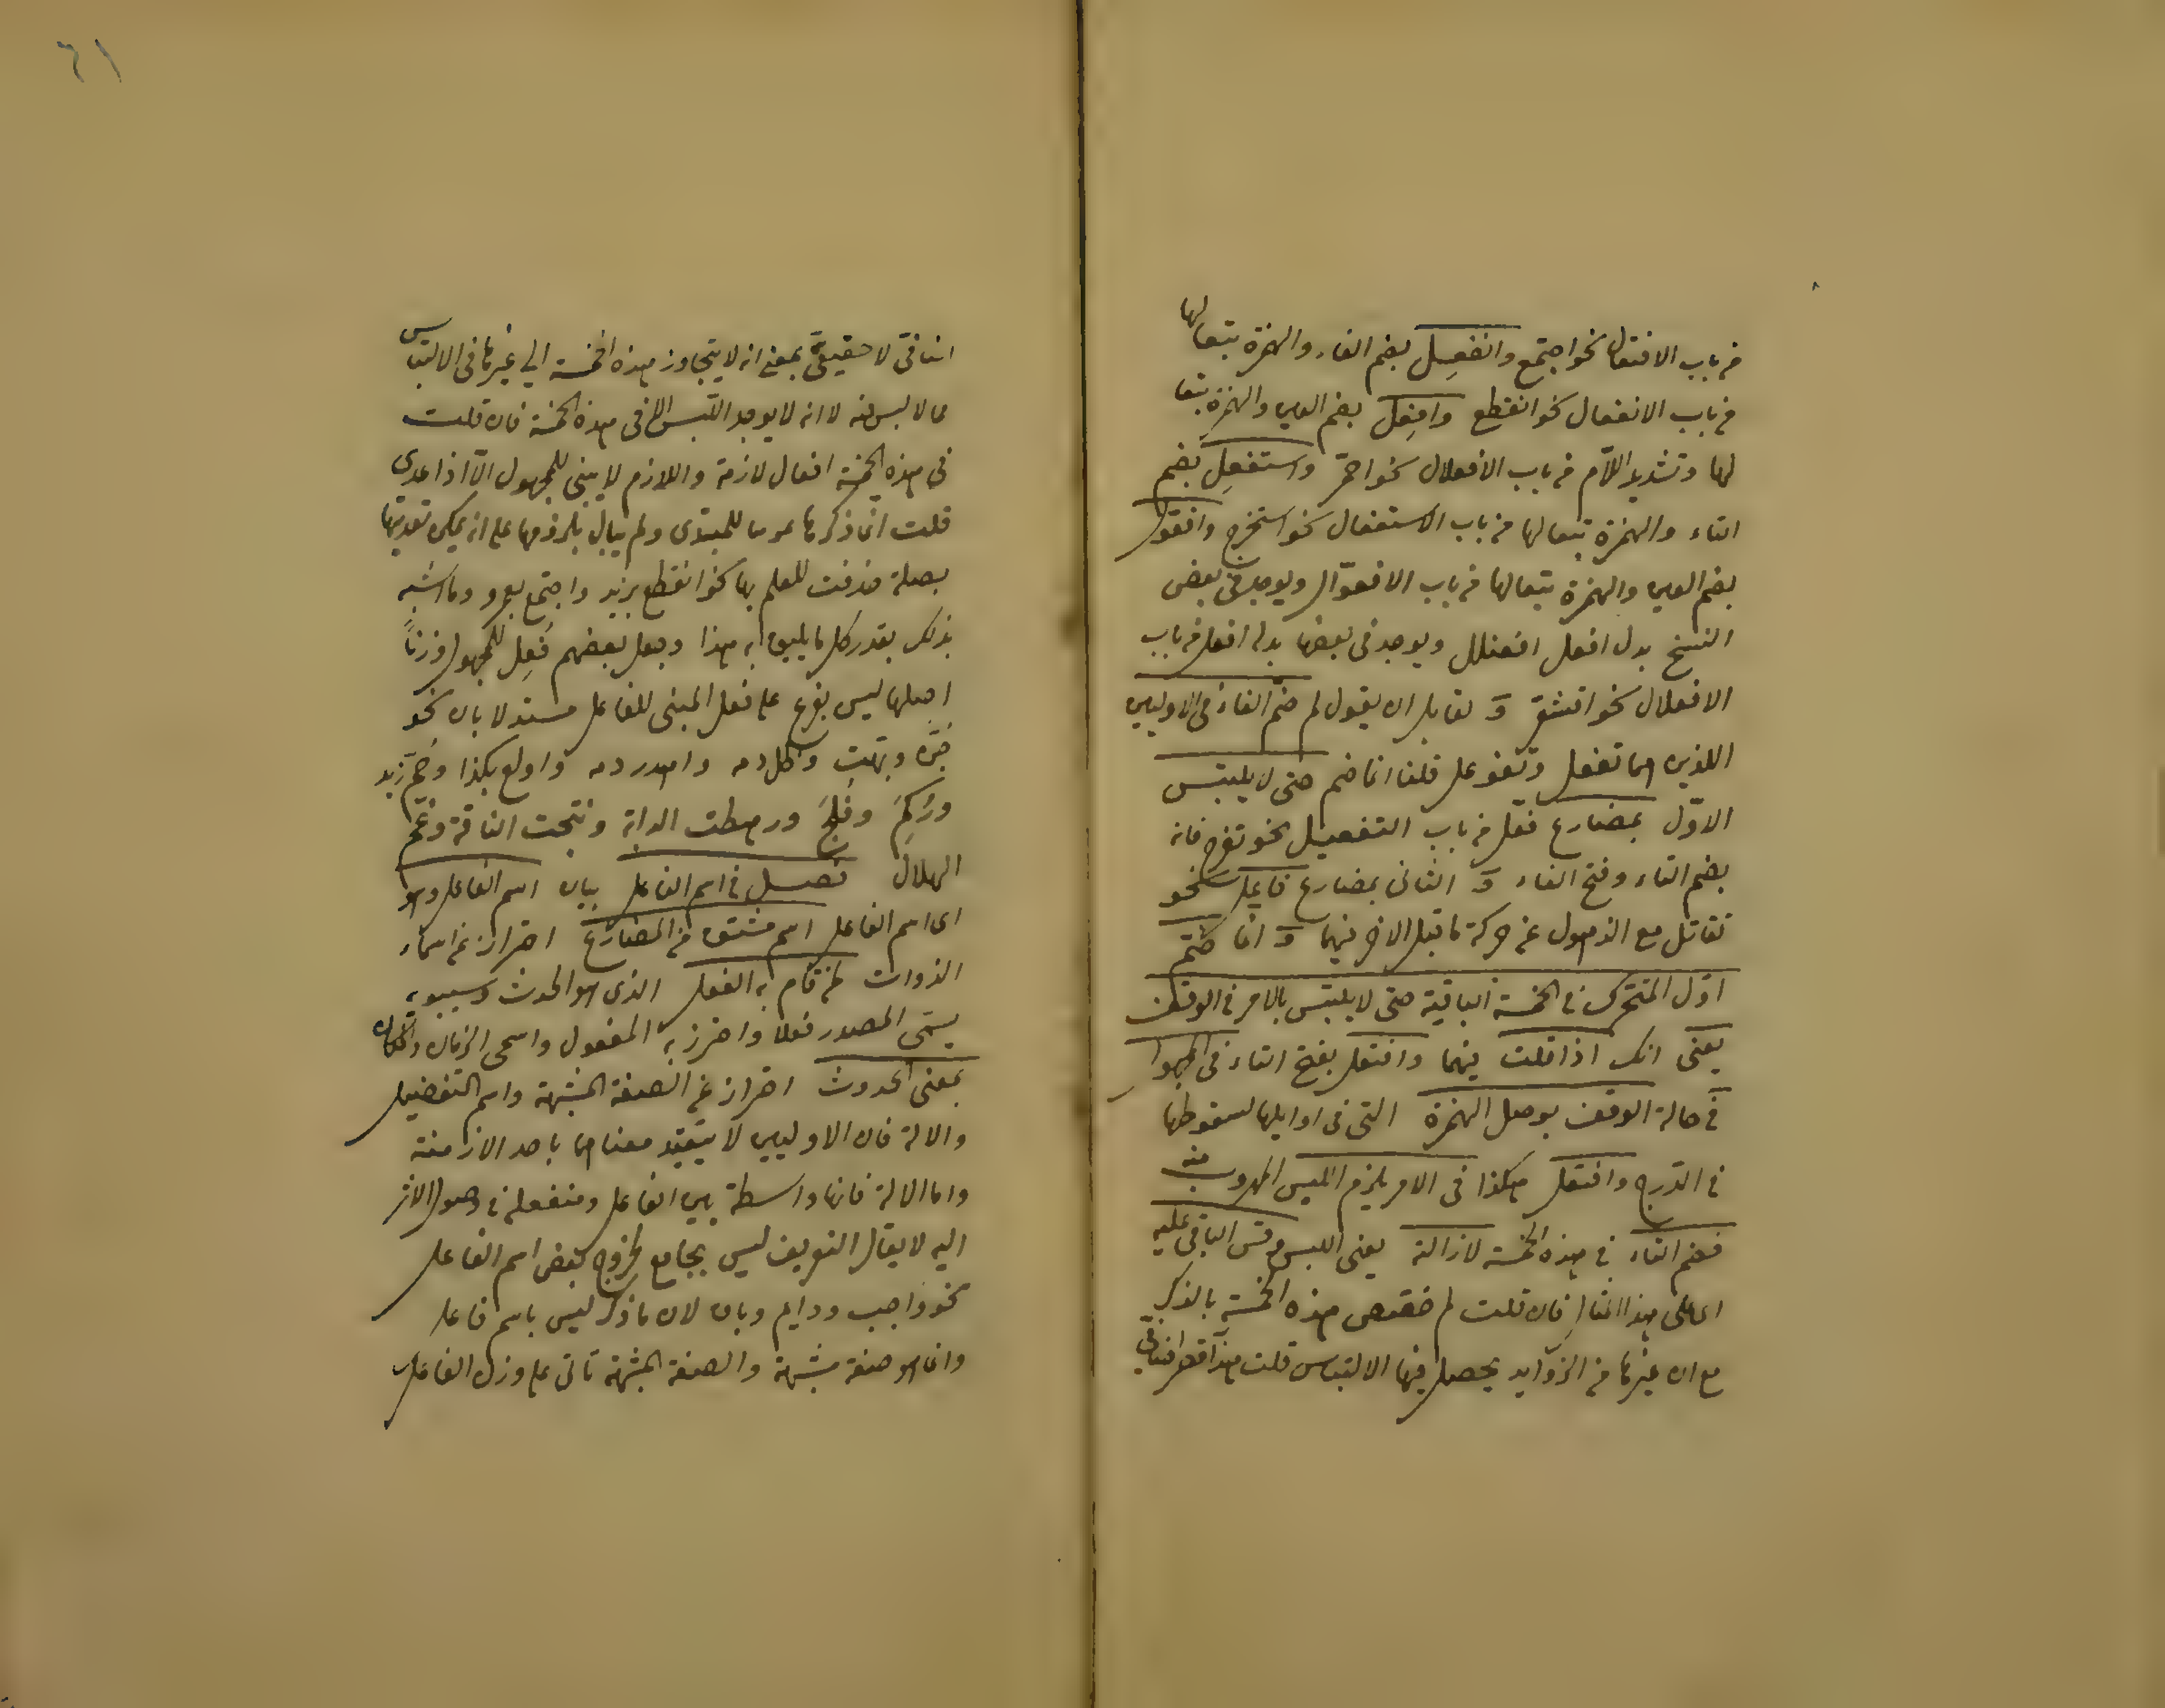 من باب الافتعال نحو اجتمع وانفعل بضم الفاء والهمزة تبعا لها
من باب الانفعال نحو انقطع وافعل بضم العين والهمزة تبعا
لها وتشديد اللام من باب الافعلال نحو احمر واستفعل بضم
التاء والهمزة تبعا لها من باب الاستفعال نحو استخرج وافعول
بضم العين والهمزة تبعا لها من باب الافعوال ويوجد في بعض
النسخ بدل افعل افعنلل ويوجد في بعضها بدله افعلل من باب
الافعلال نحو اقشعر و لقايل ان يقول لم ضم الفاء في الاوليين
اللذين هما تفعل وتفوعل قلنا انما ضم حتى لا يلتبس
الاول بمضارع فعل من باب التفعيل نحو تفرح فانه
بضم التاء وفتح الفاء و الثاني بمضارع فاعل نحو
تقاتل مع الذهول عن حركة ما قبل الاخر فيهما و انما ضم
اول المتحرك في الخمسة الباقية حتى لا يلتبس بالامر في الوقف
يعني انك اذا قلت فيهما وافتعل بفتح التاء في المجهول
في حالة الوقف بوصل الهمزة التي في اوايلها لسقوطها
في الدرج وافتعل هكذا في الامر يلزم اللبس المهروب منه
فضم التاء في هذه الخمسة لازالته يعني اللبس وقس الباقي عليه
اي على هذا المثال فان قلت لم خصص هذه الخمسة بالذكر
مع ان غيرها من الزوايد يحصل فيها الالتباس قلت هذا قصر اضافي
اضافي لا حقيقي بمعنى انه لا يتجاوز هذه الخمسة الي غيرها في الالتباس
مما لا لبس فيه لا انه لا يوجد اللبس الا في هذه الخمسة فان قلت
في هذه الخمسة افعال لازمة واللازم لا يبنى للمجهول الا اذا عدى
قلت انما ذكرها للمبتدي ولم يبال بلزومها على انه يمكن تعديتها
بصلة حذفت للعلم بها نحو انقطع بزيد واجتمع بعمرو وما اشبه
بذلك بقدر كل ما يليق به هذا وجعل بعضهم فعل للمجهول وزنا
اصلها ليس بفرع على فعل المبني للفاعل مستدلا بان نحو
جن وبهت وطل دمه واهدر دمه واولع بكذا وحم زيد
وزكم وفلج ورهطت الدابة ونتجت الناقة وغم
الهلال فصل في اسم الفاعل بيان اسم الفاعل وهو
اي اسم الفاعل اسم مشتق من المضارع احتراز عن اسماء
الذوات لمن قام به الفعل الذي هو الحدث وسيبويه
يسمى المصدر فعلا واحترز به المفعول واسمى الزمان والمكان
بمعنى الحدوث احتراز عن الصفة المشبهة واسم التفضيل
والالة فان الاوليين لا يتقيد معناهما باحد الازمنة
واما الالة فانها واسطة بين الفاعل ومنفعله في وصول الاثر
اليه لا يقال التعريف ليس بجامع لخروج بعض اسم الفاعل
نحو واجب ودايم وبان لان ما ذكر ليس باسم فاعل
وانما هو صفة مشبهة والصفة المشبهة تاتي على وزن الفاعل
٦١